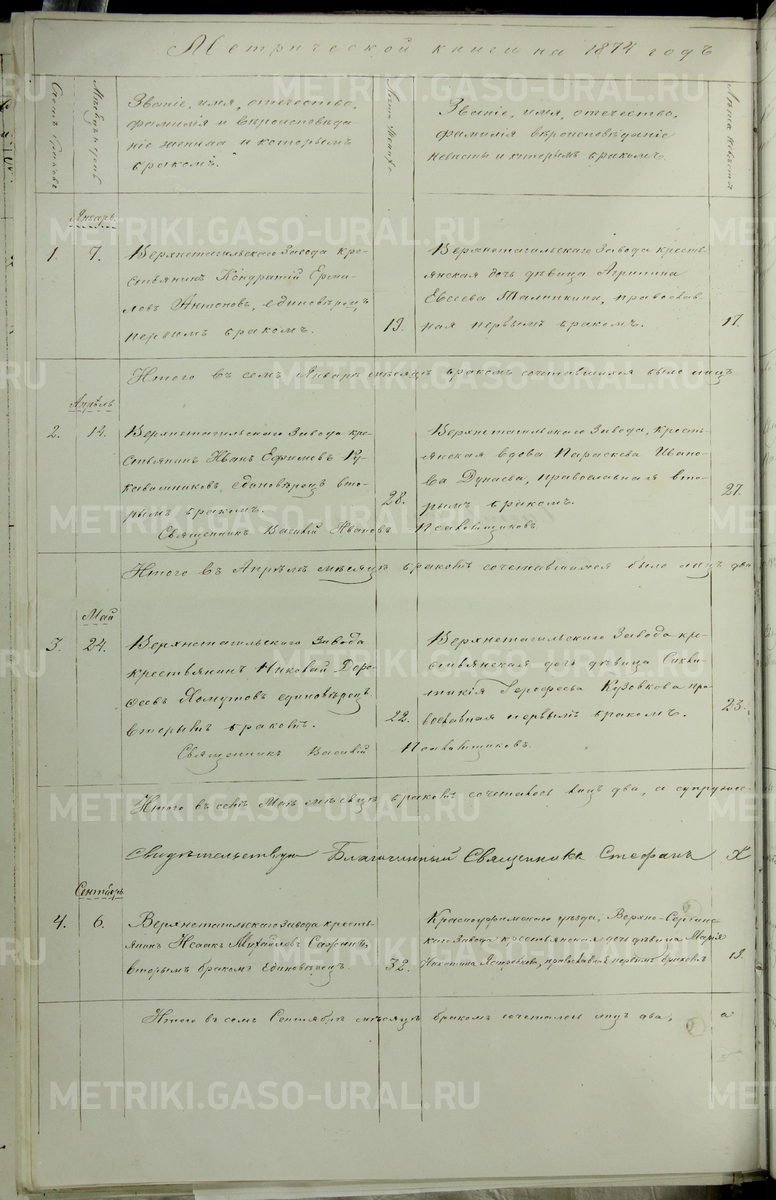 Метрической книги на 1874 годъ
Счетъ браковъ
Мѣсяцъ и день
Званіе, имя, отечество,
фамилія и вѣроисповѣда-
ніе жениха и которымъ
бракомъ.
Лѣта жениха
Званіе, имя, отечество,
фамилія вѣроисповѣданіе
невѣсты и которымъ бракомъ.
Лѣта невѣсты
Январь
1. 7.
Верхнетагильскаго Завода кре-
стьянинъ Кондратій Ерми-
ловъ Антоновъ, единовѣрецъ,
первымъ бракомъ.
19.
Верхнетагильскаго Завода кресть-
янская дочь дѣвица
Евсеева православ-
ная первымъ бракомъ.
17.
Итого въ семъ Январѣ мѣсяцѣ бракомъ сочетавшихся было лицъ
Апрѣль
2. 14.
Верхнетагильскаго Завода кре-
стьянинъ Иванъ Ефимовъ Ру-
кавишниковъ, единовѣрецъ вто-
рымъ бракомъ.
28.
Верхнетагильскаго Завода, кресть-
янская вдова Параскева Ивано-
ва Дунаева, православная вто-
рымъ бракомъ.
27.
Священникъ Василій Ивановъ
Итого въ Апрѣлѣ мѣсяцѣ бракомъ сочетавшихся было лицъ два
Май
3. 24.
Верхнетагильскаго Завода
крестьянинъ Николай Доро-
феевъ единовѣрецъ
вторымъ бракомъ.
22.
Верхнетагильскаго Завода кре-
стьянская дочь дѣвица
Кузовкова пра-
вославная первымъ бракомъ.
23.
Священникъ Василій
Итого въ семъ Маѣ мѣсяцѣ бракомъ сочеталось лицъ два, а
Благочинный Священникъ Стефанъ
Сентябрь
4. 6.
Верхнетагильскаго Завода кресть-
янинъ Исаакъ Михайловъ Сажинъ
вторымъ бракомъ Единовѣрецъ.
32.
Красноуфимскаго уѣзда, Верхно-Сергин-
скаго Завода крестьянская дочь дѣвица Марія
Никитина Ястребкова, православная первымъ бракомъ
19.
Итого въ семъ Сентябрѣ мѣсяцѣ бракомъ сочеталось лицъ два, а
METRIKI.GASO-URAL.RU